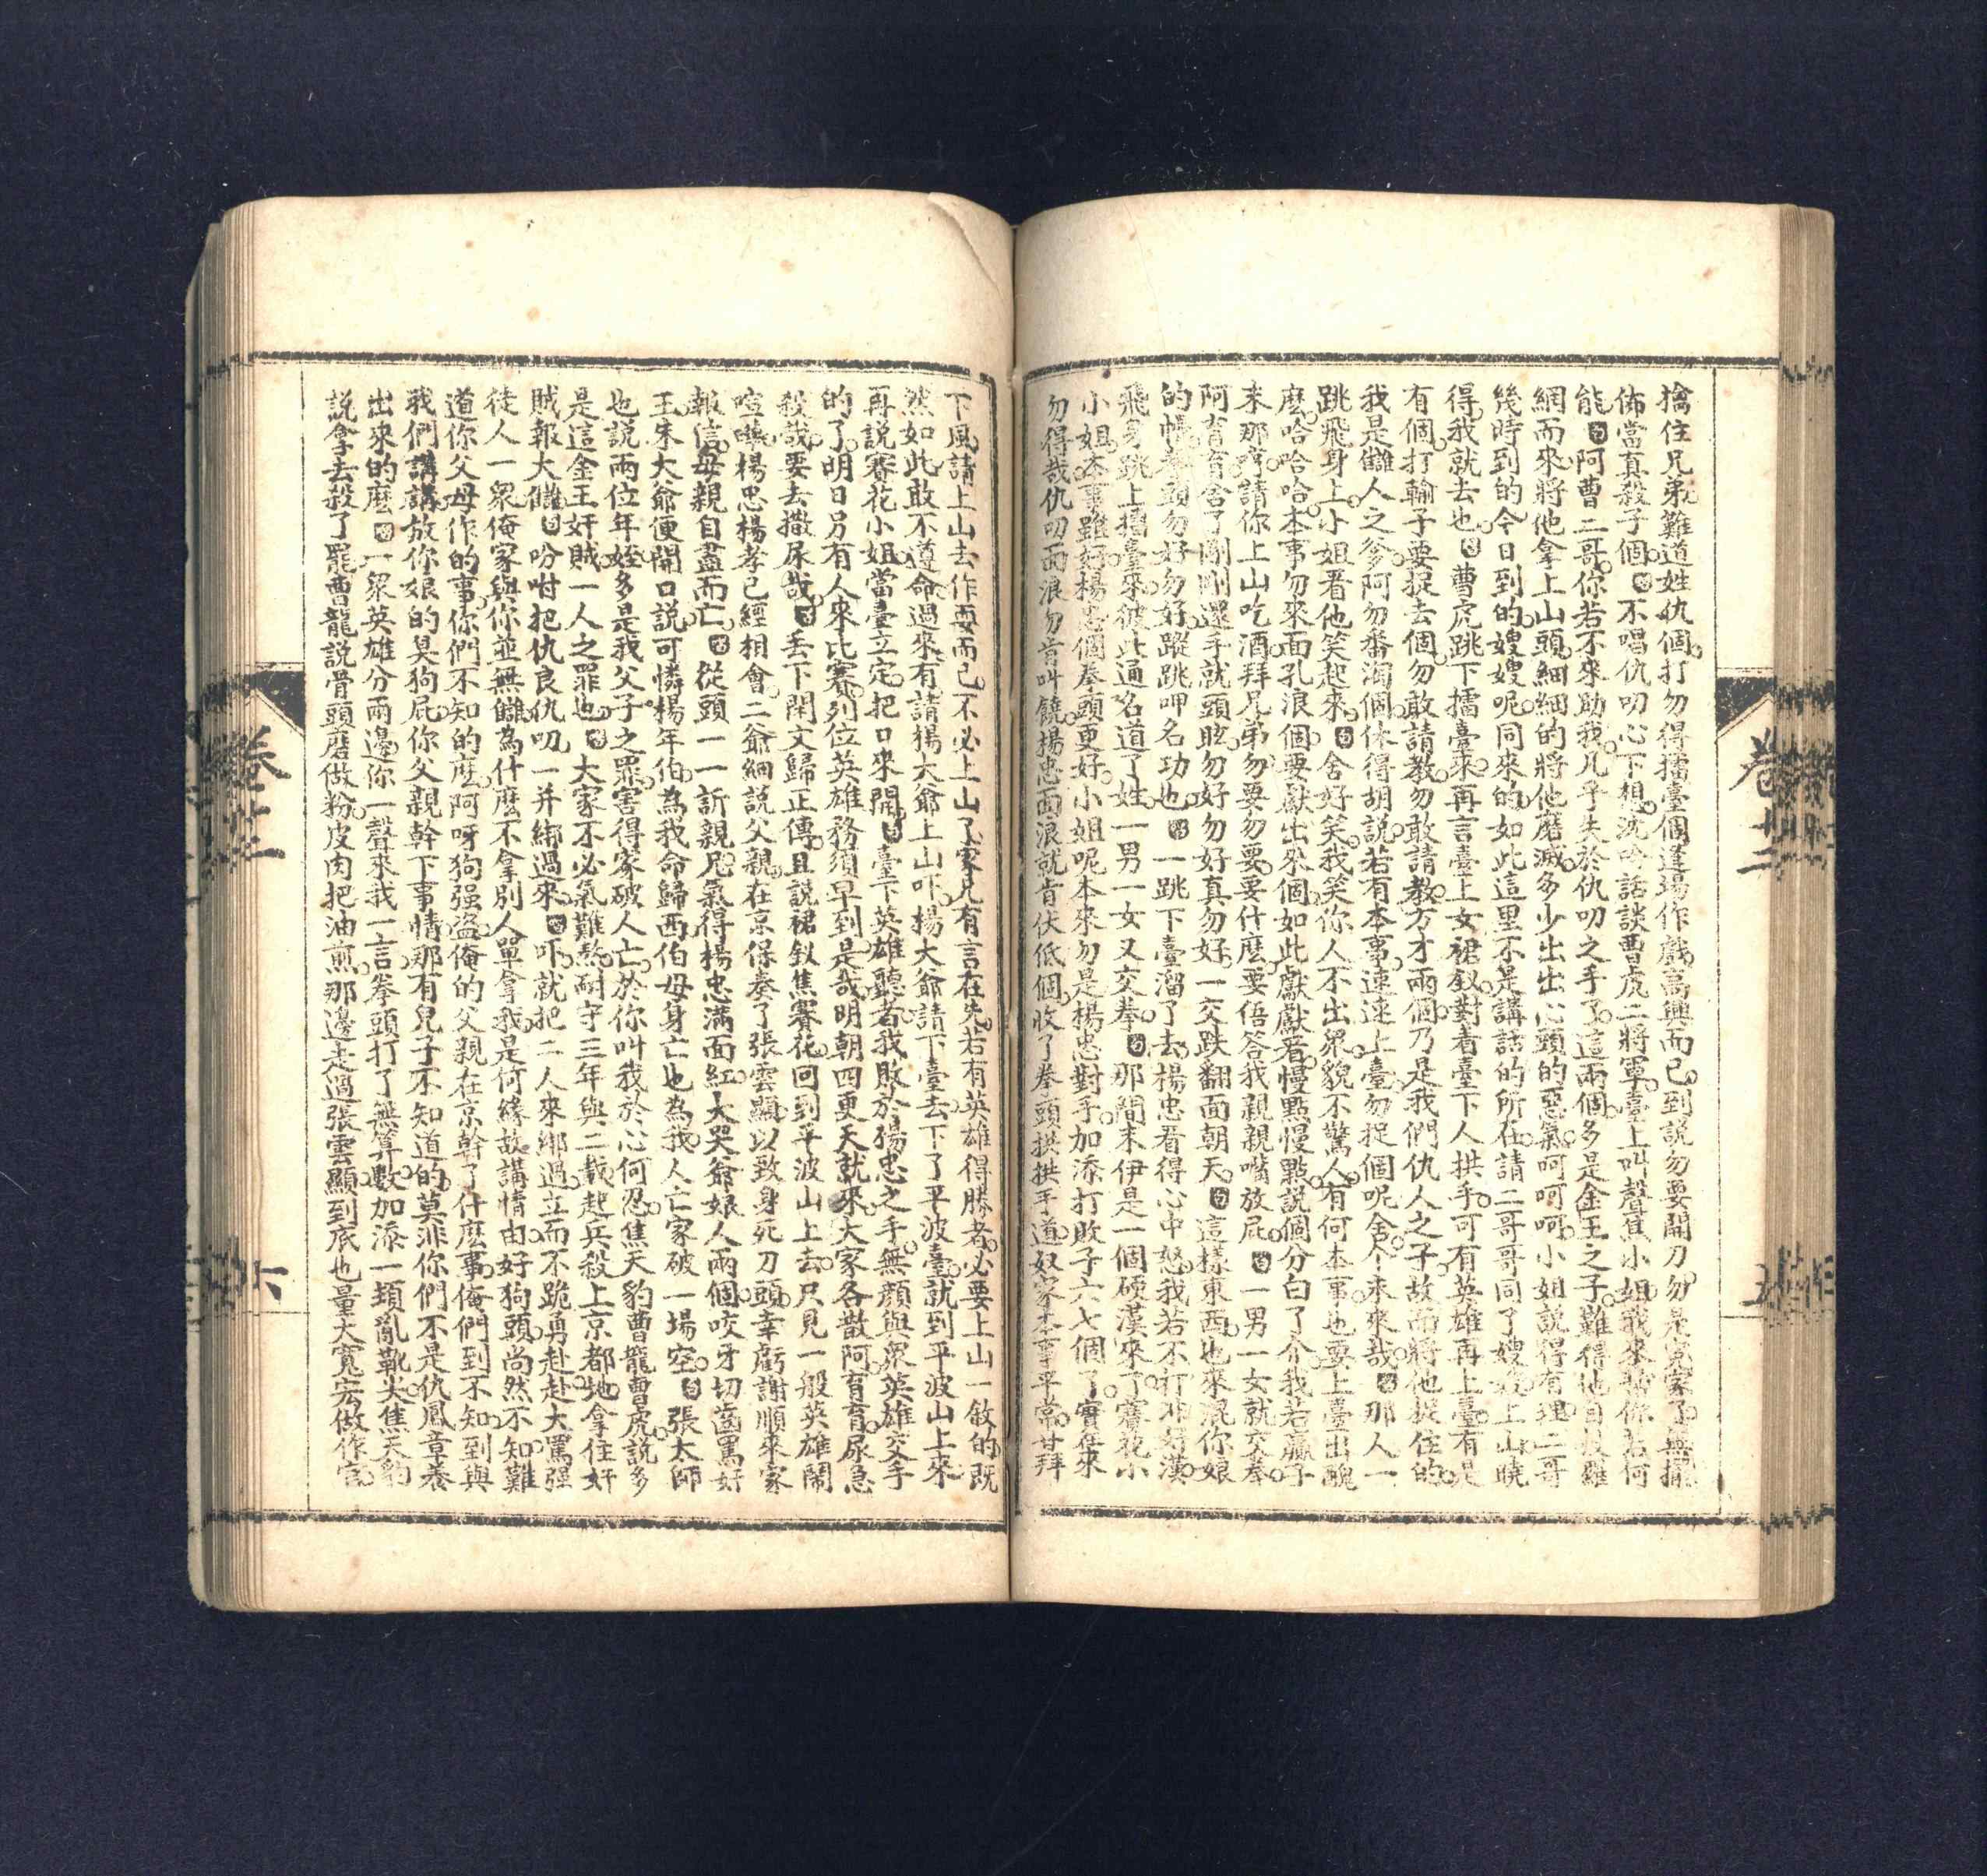 擒住兄弟難道姓仇個打勿得擂臺個逢場作戲高興而已到説勿要開刀勿是冤家了無擺
佈當真殺子個 不唱仇叨心下想沈吟話談曹虎二將軍臺上叫聲焦小姐我來替你若何
能 阿曹二哥你若不來助我几乎失於仇叨之手了這兩個多是金王之子難得他自投羅
網而來將他拿上山頭細細的將他磨滅多少出出心頭的惡氣呵呵呵小姐説得有理二哥
幾時到的今日到的嫂嫂呢同來的如此這里不是講話的所在請二哥哥同了嫂嫂上山曉
得我就去也 曹虎跳下擂臺來再言臺上女裙釵對着臺下人拱手可有英雄再上臺有是
有個打輸子要捉去個勿敢請教勿敢請教方才兩個乃是我們仇人之子故而將他捉住的
我是讎人之爹阿勿番淘個休得胡説若有本事速速上臺勿捉個呢舍个來來哉 那人一
跳飛身上小姐看他笑起來 舍好笑我笑你人不出眾貌不驚人有何本事也要上臺出醜
麽哈哈哈本事勿來面孔浪個要獻出來個如此獻獻看慢點慢點説個分白了介我若贏子
來那 請你上山吃酒拜兄弟勿要勿要要什麽要俉答我親親嘴放屁 一男一女就交拳
阿育育舍了剛剛還手就頭眩勿好勿好真勿好一交跌翻面朝天 這樣東西也來混你娘
的帳拳頭勿好勿好蹤跳呷名功也 一跳下臺溜了去楊忠看得心中怒我若不打非好漢
飛身跳上擂臺來彼此通名道了姓一男一女又交拳 那間末伊是一個硬漢來了賽花小
小姐本事雖好楊忠個拳頭更好小姐呢本來勿是楊忠對手加添打敗子六七個了實在來
勿得哉仇叨面浪勿肯叫饒楊忠面浪就肯伏低個收了拳頭拱拱手道奴家本事平常甘拜
卷十二
五
下風請上山去作耍而已不必上山了家兄有言在先若有英雄得勝者必要上山一敘的既
然如此敢不遵命過來有請楊大爺上山吓楊大爺請下臺去下了平波臺就到平波山上來
再説賽花小姐當臺立定把口來開 臺下英雄聽者我敗於楊忠之手無顏與眾英雄交手
的了明日另有人來比賽列位英雄務須早到是哉明朝四更天就來大家各散阿育育尿急
殺哉要去撒尿哉 丢下閑文歸正傳且説裙釵焦賽花回到平波山上去只見一般英雄鬧
喧嘩楊忠楊孝已經相會二爺細説父親在京保奏了張雲顯以致身死刀頭幸虧謝順來家
報信母親自盡而亡 從頭一一訴親兄氣得楊忠滿面紅大哭爺娘人兩個咬牙切齒罵奸
王朱大爺便開口説可憐楊年伯為我命歸西伯母身亡也為我人亡家破一場空 張太師
也説兩位年姪多是我父子之罪害得家破人亡於你叫我於心何忍焦天豹曹龍曹虎説多
是這金王奸賊一人之罪也 大家不必氣難熬耐守三年與二載起兵殺上京都地拿住奸
賊報大讎 吩咐把仇良仇叨一并綁過來 吓就把二人來綁過立而不跪勇赳赳大罵强
徒人一眾俺家與你並無讎為什麽不拿別人單拿我是何緣故講情由好狗頭尚然不知難
道你父母作的事你們不知的麽阿呀狗强盜俺的父親在京幹了什麽事俺們到不知到與
我們講講放你娘的臭狗屁你父親幹下事情那有兒子不知道的莫非你們不是仇鳳章養
出來的麽 一眾英雄分兩邊你一聲來我一言拳頭打了無算數加添一頓亂靴尖焦天豹
説拿去殺了罷曹龍説骨頭磨做粉皮肉把油煎那邊走過張雲顯到底也量大寬宏做作官
卷十二
六